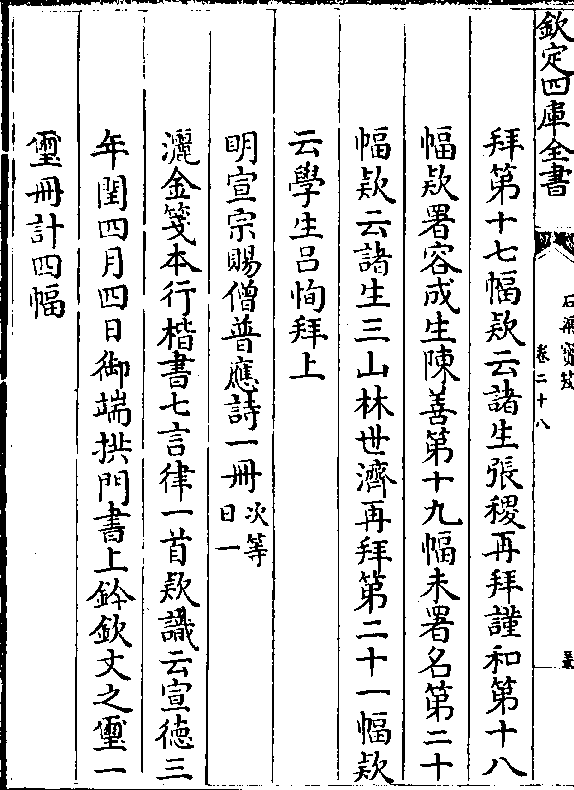 欽定四庫全書
石渠寶笈
卷二十八
拜第十七幅欵云諸生張稷再拜謹和第十八
幅欵署容成生陳善第十九幅未署名第二十
幅欵云諸生三山林世濟再拜第二十一幅欵
云學生吕恂拜上
明宣宗賜僧普應詩一冊次等日一
灑金箋本行楷書七言律一首欵識云宣徳三
年閏四月四日御端拱門書上鈐欽文之璽一
璽冊計四幅